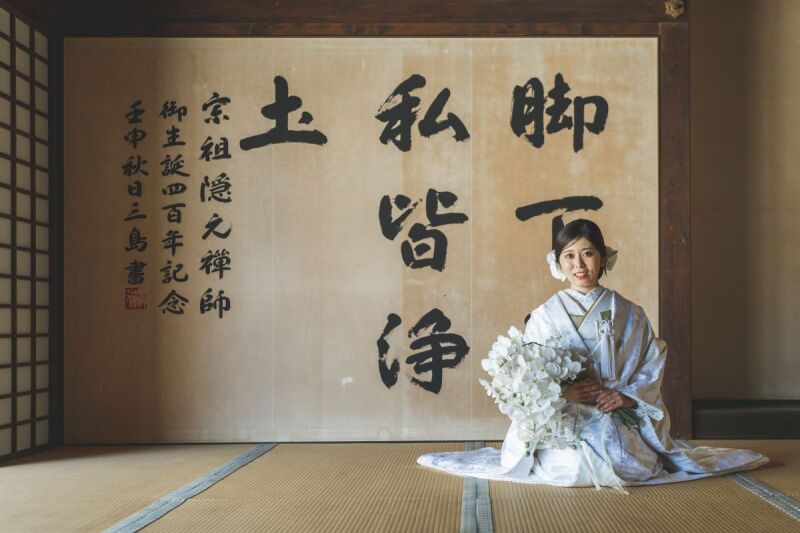 脚下
私皆浄
土
宗祖隠元禪師
御生誕四百年記念
壬申秋日三島書